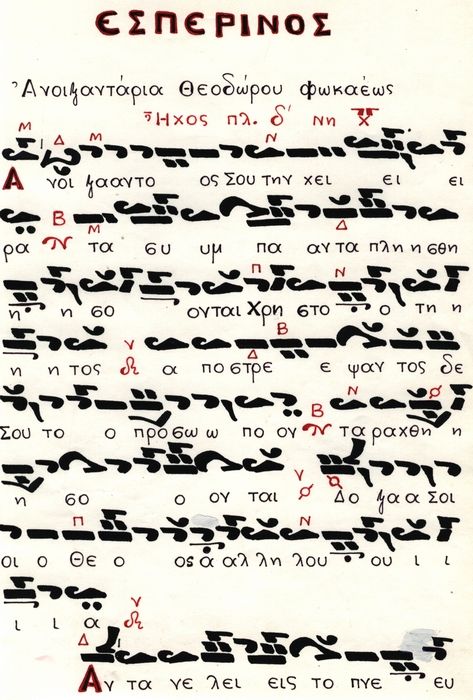 ΕΣΠΕΡΙΝΟΣ
Ἀνοιξαντάρια Θεοδώρου φωκαέως
Ἦχος πλ. δ΄ Νη
Α νοι ξααντο ος Σου την χει ει ει
ρα τα συ υμ πα αν τα πλη η σθη
η η σο ονται Χρη στο ο τη η
η η τος α πο στρε ε ψαν τος δε
Σου το ο προσω ω πο ον τα ραχθη η
η σο ο ον ται Δο ξα α Σοι
οι ο Θε ο ος α αλ λη λου ου ι ι
ι ι α
Αν τα νε λει εις το πνε ευ